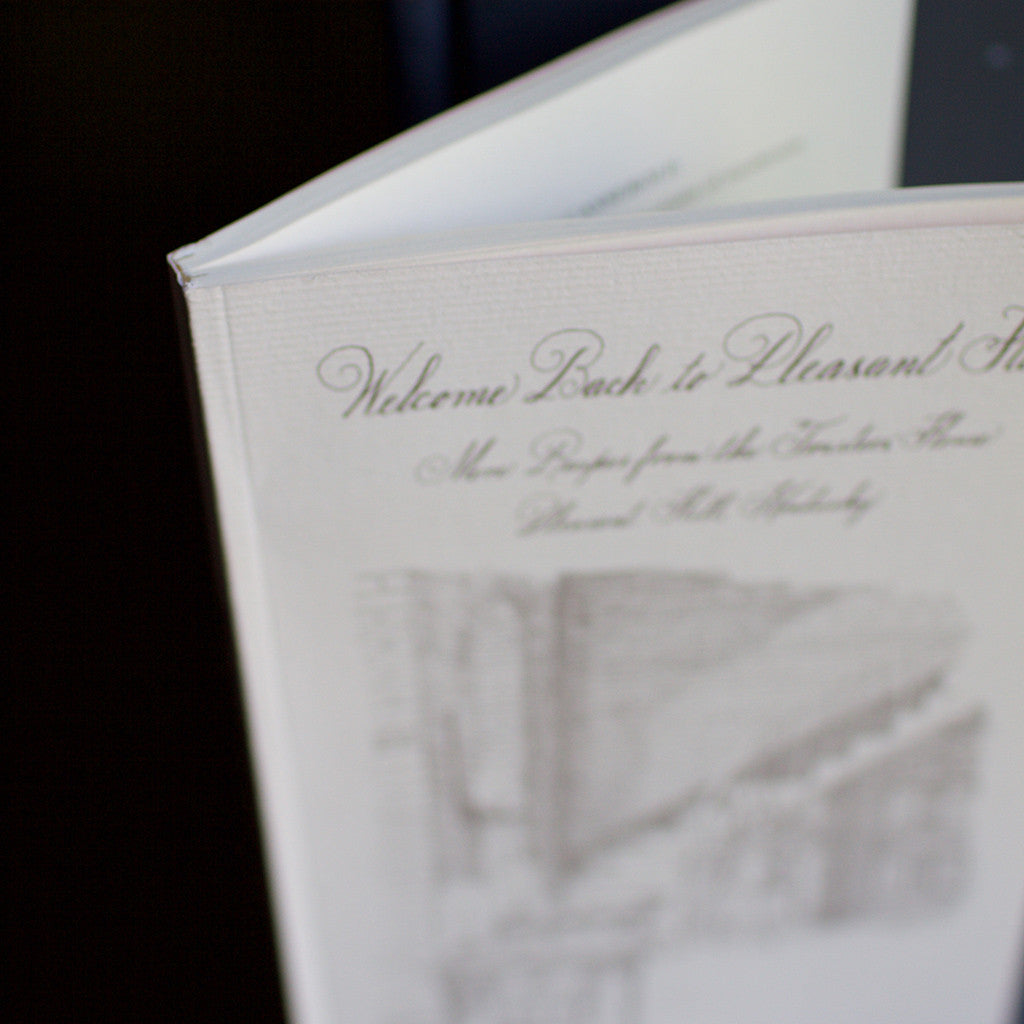 Welcome Back to Pleasant
More Recipes from the Trustees House
Pleasant Hill, Kentucky